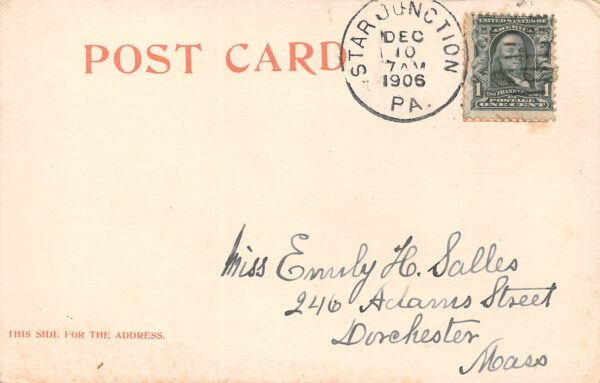 POST CARD
STAR JUNCTION
DEC
10
7 AM
1906
PA.
UNITED STATES OF
AMERICA
1 1
POSTAGE
ONE CENT
Miss Emily H. Salles
246 Adams Street
Dorchester
Mass
THIS SIDE FOR THE ADDRESS.